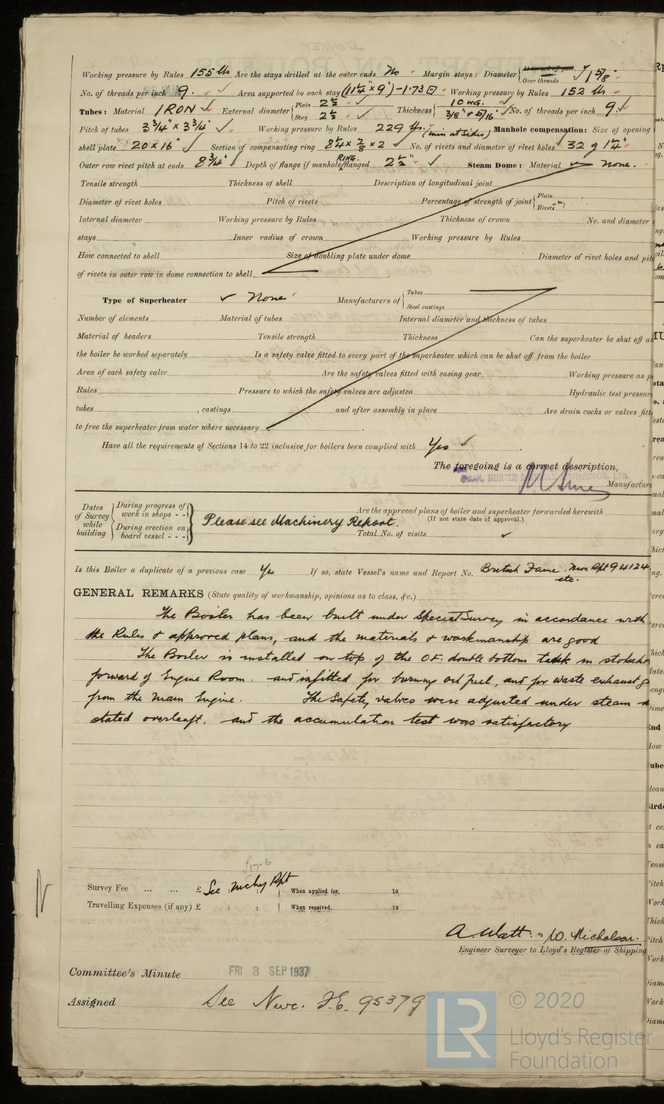 Working pressure by Rules 155 lb Are the stays drilled at the outer ends No Margin stays: Diameter { At turned off part, Over threads 1 5/8"
No. of threads per inch 9. Area supported by each stay (11 1/2" x 9") - 1.73 Working pressure by Rules 152 lb
Tubes: Material IRON External diameter { Plain 2 1/2 Stay 2 1/2 Thickness { 10 WG. 3/8" & 5/16" No. of threads per inch 9
Pitch of tubes 3 3/4" x 3 3/4" Working pressure by Rules 229 lb Manhole compensation: Size of opening
shell plate 20 x 16" Section of compensating ring 8 1/4 x 7/8 x 2 No. of rivets and diameter of rivet holes 32 @ 1 1/4"
Outer row rivet pitch at ends 8 3/4" Depth of flange if manhole flanged RING 2 1/2" Steam Dome: Material None.
Tensile strength Thickness of shell Description of longitudinal joint
Diameter of rivet holes Pitch of rivets Percentage of strength of joint { Plate Rivets
Internal diameter Working pressure by Rules Thickness of crown No. and diameter
stays Inner radius of crown Working pressure by Rules
How connected to shell Size of doubling plate under dome Diameter of rivet holes and pit
of rivets in outer row in dome connection to shell
Type of Superheater None Manufacturers of { Tubes Steel castings
Number of elements Material of tubes Internal diameter and thickness of tubes
Material of headers Tensile strength Thickness Can the superheater be shut off a
the boiler be worked separately Is a safety valve fitted to every part of the superheater which can be shut off from the boiler
Area of each safety valve Are the safety valves fitted with easing gear Working pressure as p
Rules Pressure to which the safety valves are adjusted Hydraulic test pressure
tubes , castings and after assembly in place Are drain cocks or valves fitt
to free the superheater from water where necessary
Have all the requirements of Sections 14 to 22 inclusive for boilers been complied with Yes
The foregoing is a correct description,
Manufactur
Dates of Survey while building { During progress of work in shops - - During erection on board vessel - - - } Please see Machinery Report. Are the approved plans of boiler and superheater forwarded herewith
(If not state date of approval.)
Total No. of visits
Is this Boiler a duplicate of a previous case Yes If so, state Vessel's name and Report No. British Fame. Nwc Rpt 94124
etc.
GENERAL REMARKS (State quality of workmanship, opinions as to class, &c.)
The Boiler has been built under Special Survey in accordance with
the Rules & approved plans, and the materials & workmanship are good
The Boiler is installed on top of the O.F. double bottom tank in stokeho
forward of Engine Room. and is fitted for burning oil fuel, and for waste exhaust g
from the Main Engine. The Safety valves were adjusted under steam a
stated overleaf. and the accumulation test was satisfactory
Survey Fee ... ... £ See Mchy Rpt When applied for, 19
Travelling Expenses (if any) £ : : When received, 19
A. Watt. W. Nicholson.
Engineer Surveyor to Lloyd's Register of Shipping
Committee's Minute FRI 3 SEP 1937
Assigned See Nwc. F.E. 95379
LR © 2020
Lloyd's Register
Foundation